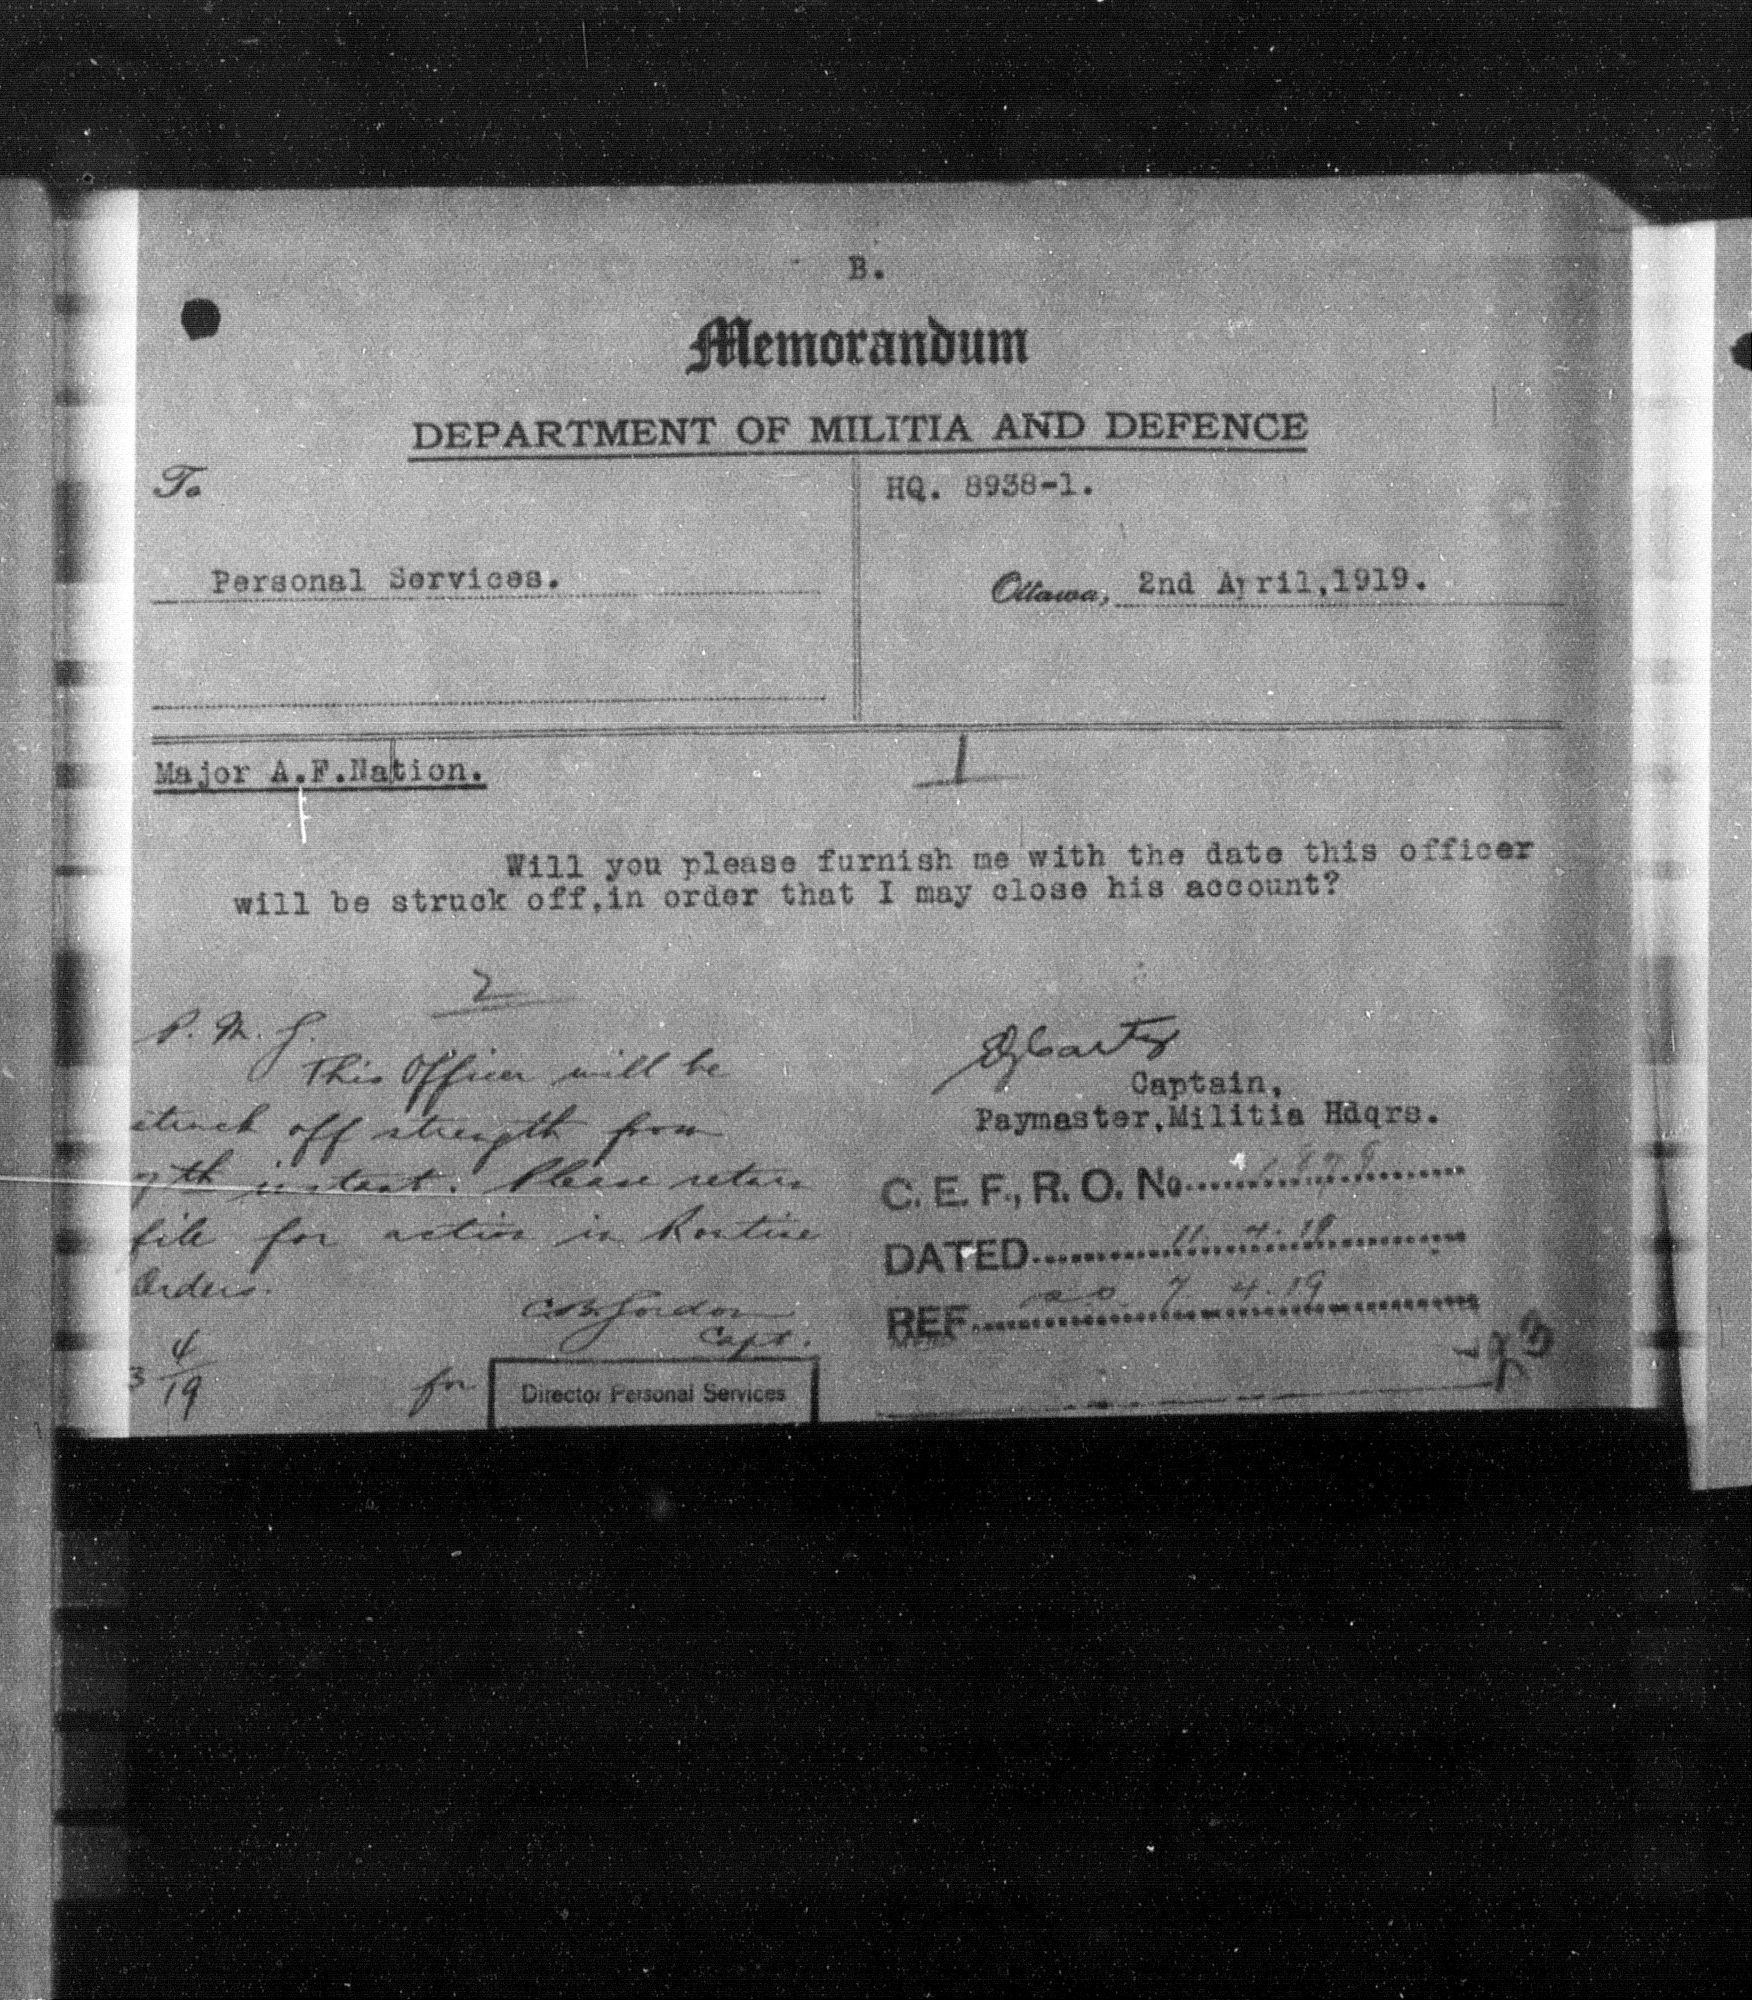 B.
Memorandum
DEPARTMENT OF MILITIA AND DEFENCE
To
HQ. 8938-1.
Personal Services.
Ottawa, 2nd April,1919.
Major A.F.Nation.
1
Will you please furnish me with the date this officer
will be struck off,in order that I may close his account?
2
P. M. G.
This Officer will be
struck off strength from
7th instant. Please return
file for action in Routine
Orders.
C B Gordon
Capt.
3 4/19
for
Director Personal Services
Captain,
Paymaster,Militia Hdqrs.
C. E. F., R. O. No
DATED 11. 4. 19
REF. 7. 4. 19